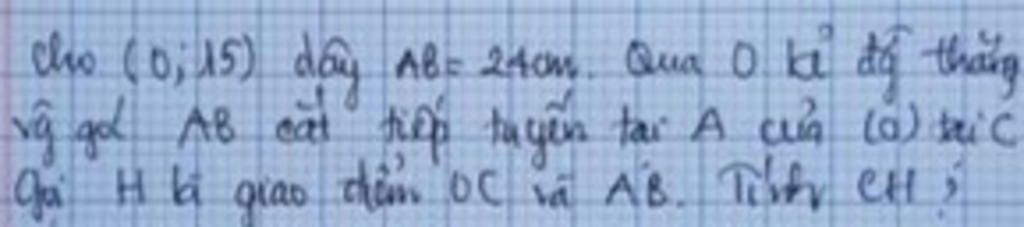 Cho (O; 15) dây AB = 24cm. Qua O kẻ đg thẳng
vg góc AB cắt tiếp tuyến tại A của (O) tại C
Gọi H là giao điểm OC và AB. Tính CH ?